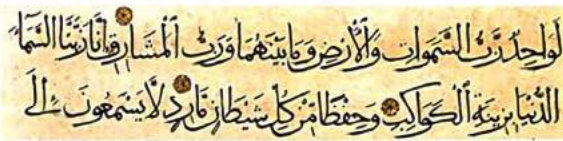 لَوَاحِدٌ رَبُّ السَّمَوَاتِ وَالْأَرْضِ وَمَا بَيْنَهُمَا وَرَبُّ الْمَشَارِقِ إِنَّا زَيَّنَّا السَّمَاءَ
الدُّنْيَا بِزِينَةٍ الْكَوَاكِبِ وَحِفْظًا مِنْ كُلِّ شَيْطَانٍ مَارِدٍ لَا يَسَّمَّعُونَ إِلَى